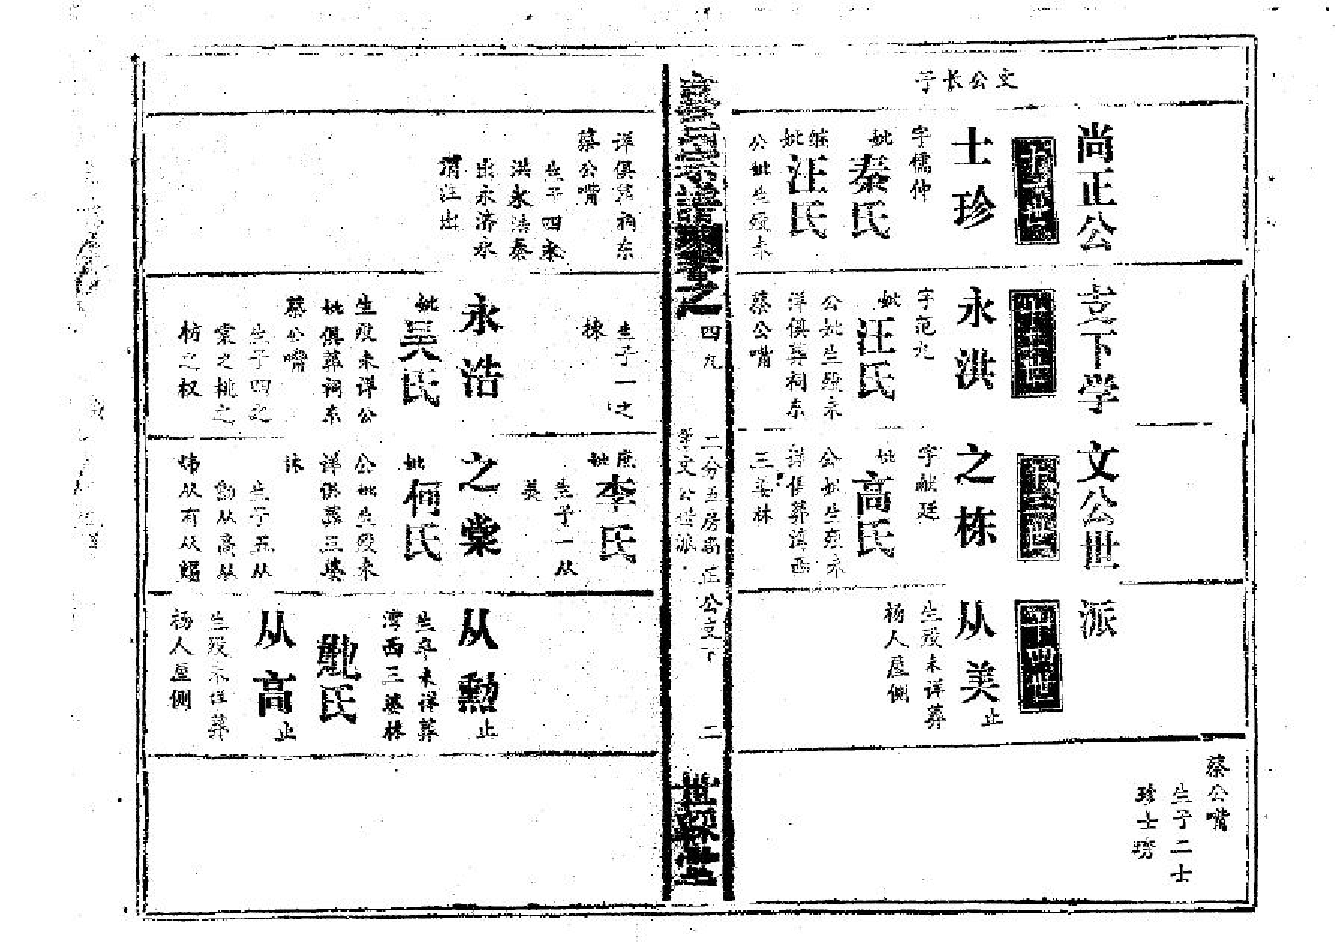 文公长子
尚正公
支下学
文公世
派
士珍
字儒仲
妣
秦氏
继妣
汪氏
公妣生殁未
详俱葬祠东
蔡公嘴
生子四永
洪永浩秦
出永济永
渭汪出
永洪
字范九
妣
汪氏
公妣生殁未
详俱葬祠东
蔡公嘴
生子一之
栋
永浩
妣
吴氏
生殁未详公
妣俱葬祠东
蔡公嘴
生子四之
棠之桃之
枋之权
之栋
字献廷
妣
高氏
公妣生殁未
详俱葬滇西
三婆林
庶妣
李氏
生子一从
美
之棠
妣
何氏
公妣生殁未
详俱葬三婆
林
生子五从
勳从高从
炜从有从
从美
止
生殁未详葬
杨人屋侧
从勳
止
生卒未详葬
湾西三婆林
氏
从高
止
生殁未详葬
杨人屋侧
蔡公嘴
生子二士
珍士
之
四九
二分五房尚正公支下
学文公世派
二
世系